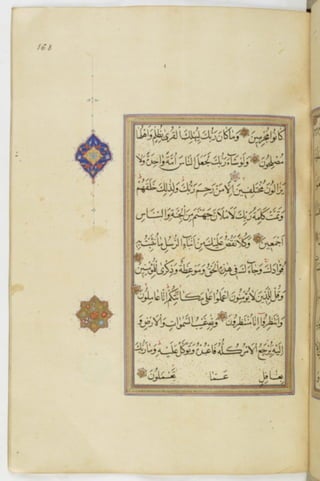 168
كانوا مجرمين وما كان ربك ليهلك القرى بظلم واهلها
مصلحون ولو شاء ربك لجعل الناس امة واحدة ولا
يزالون مختلفين الا من رحم ربك ولذلك خلقهم
وتمت كلمة ربك لاملان جهنم من الجنة والناس
اجمعين وكلا نقص عليك من انباء الرسل ما نثبت به
فؤادك وجاءك في هذه الحق وموعظة وذكرى للمؤمنين
وقل للذين لا يؤمنون اعملوا على مكانتكم انا عاملون
وانتظروا انا منتظرون ولله غيب السموات والارض و
اليه يرجع الامر كله فاعبده وتوكل عليه وما ربك
بغافل عما تعملون